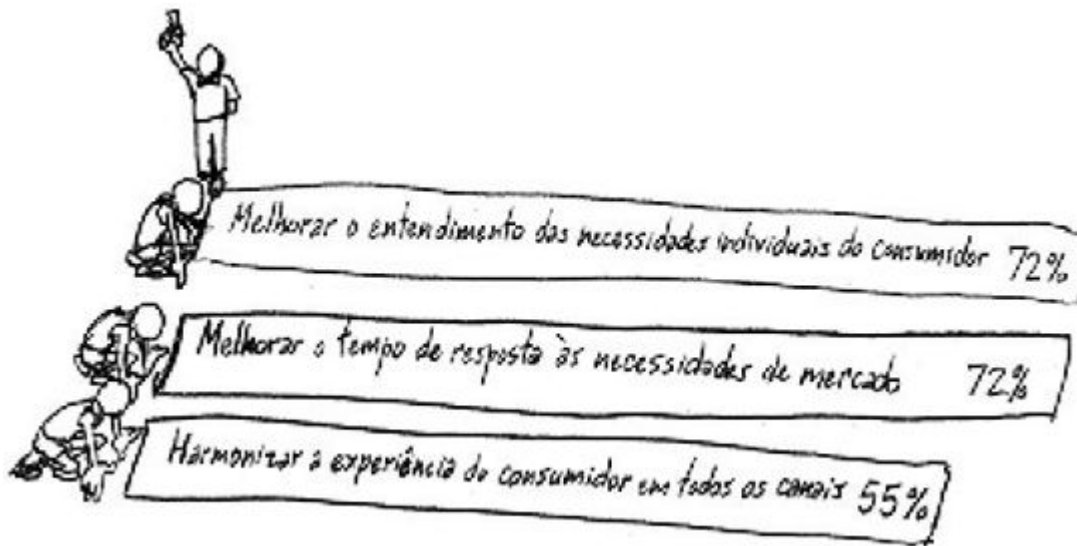 Melhorar o entendimento das necessidades individuais do consumidor 72%
Melhorar o tempo de resposta às necessidades de mercado 72%
Harmonizar a experiência do consumidor em todos os canais 55%